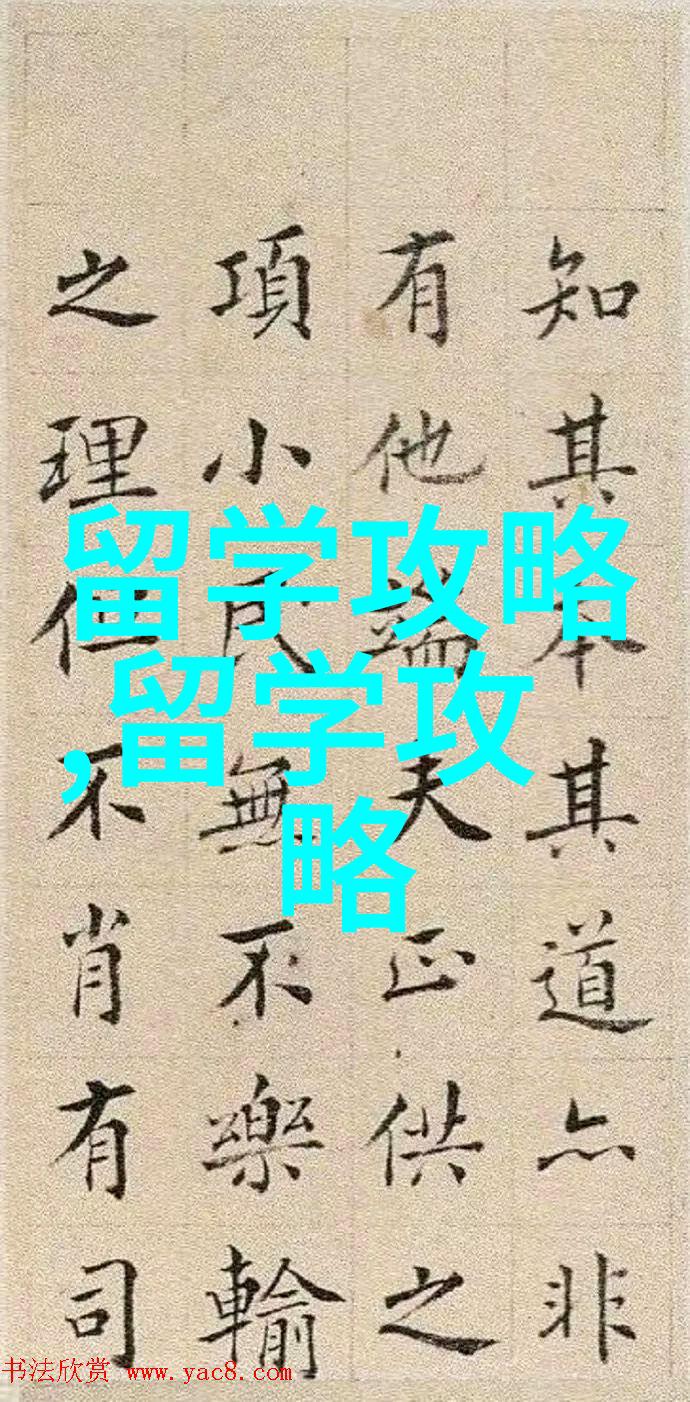 知其本其道亦非
有他端夫正供之
項小民無不樂輸
之理但不肖有司
留学攻略
,留学攻
略
书法欣赏 www.yac8.com